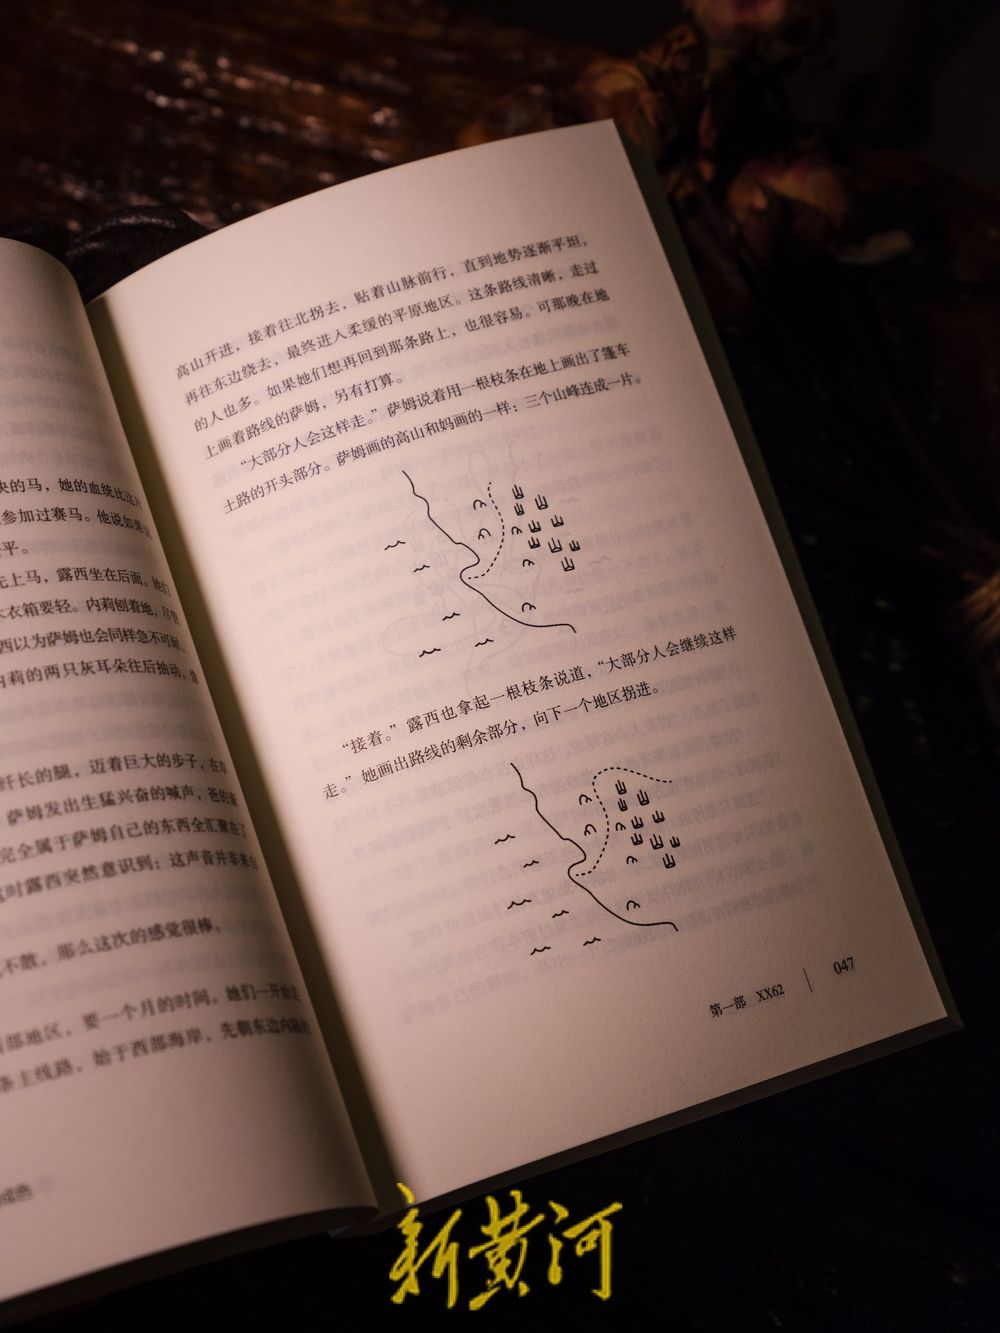 快的马，她的血统比这
参加过赛马。他说如果让
平。
先上马，露西坐在后面。她们
衣箱要轻。内莉刨着地，尽管
西以为萨姆也会同样急不可耐。
内莉的两只灰耳朵往后抽动，
纤长的腿，迈着巨大的步子，在草
萨姆发出生猛兴奋的喊声，爸的
完全属于萨姆自己的东西全汇聚在了
这时露西突然意识到：这声音并非来自
不散，那么这次的感觉很棒。
部地区，要一个月的时间。她们一开始走
条主线路，始于西部海岸，先朝东边内陆的
成色
高山开进，接着往北拐去，贴着山脉前行，直到地势逐渐平坦，
再往东边绕去，最终进入柔缓的平原地区。这条路线清晰，走过
的人也多。如果她们想再回到那条路上，也很容易。可那晚在地
上画着路线的萨姆，另有打算。
“大部分人会这样走。”萨姆说着用一根枝条在地上画出了篷车
土路的开头部分。萨姆画的高山和妈画的一样：三个山峰连成一片。
“接着。”露西也拿起一根枝条说道，“大部分人会继续这样
走。”她画出路线的剩余部分，向下一个地区拐进。
第一部 XX62 | 047
新黄河